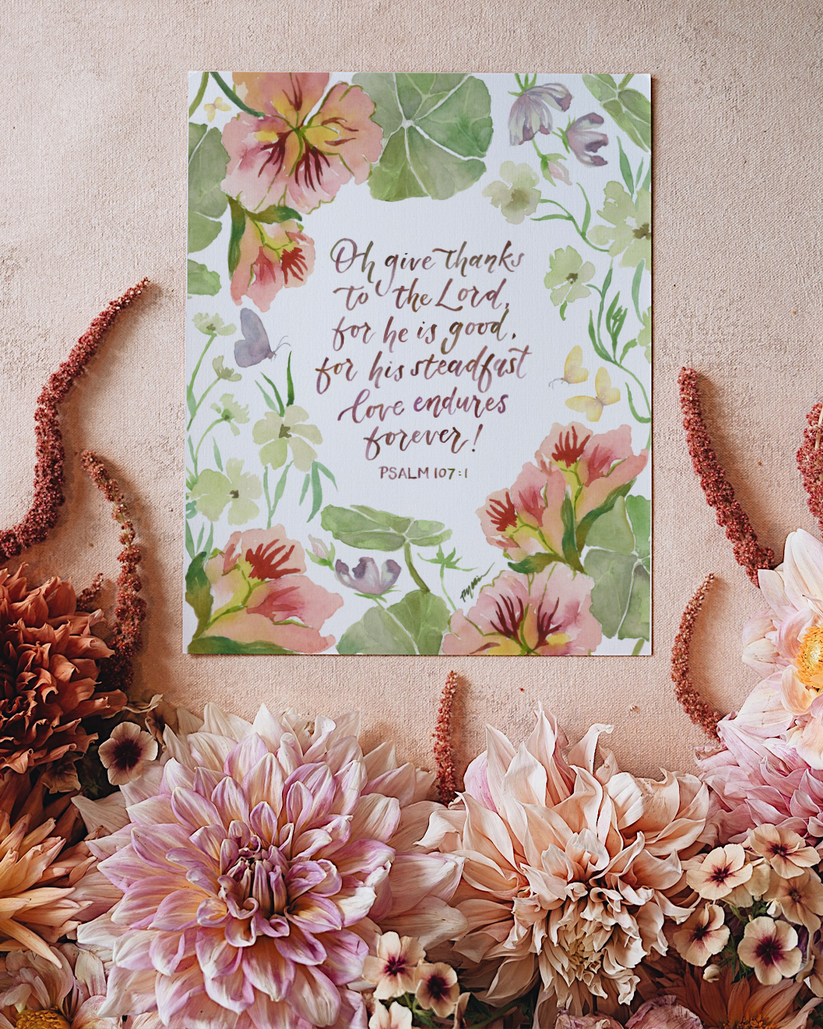 Oh give thanks
to the Lord,
for he is good,
for his steadfast
love endures
forever!
PSALM 107:1